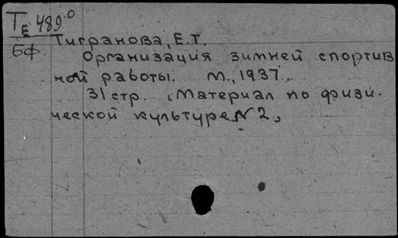 Те 489⁰
Тигранова, Е.Т.
БФ.
Организация зимней спортив
ной работы. М., 1937.
31 стр. (Материал по физи-
ческой культуре №2)